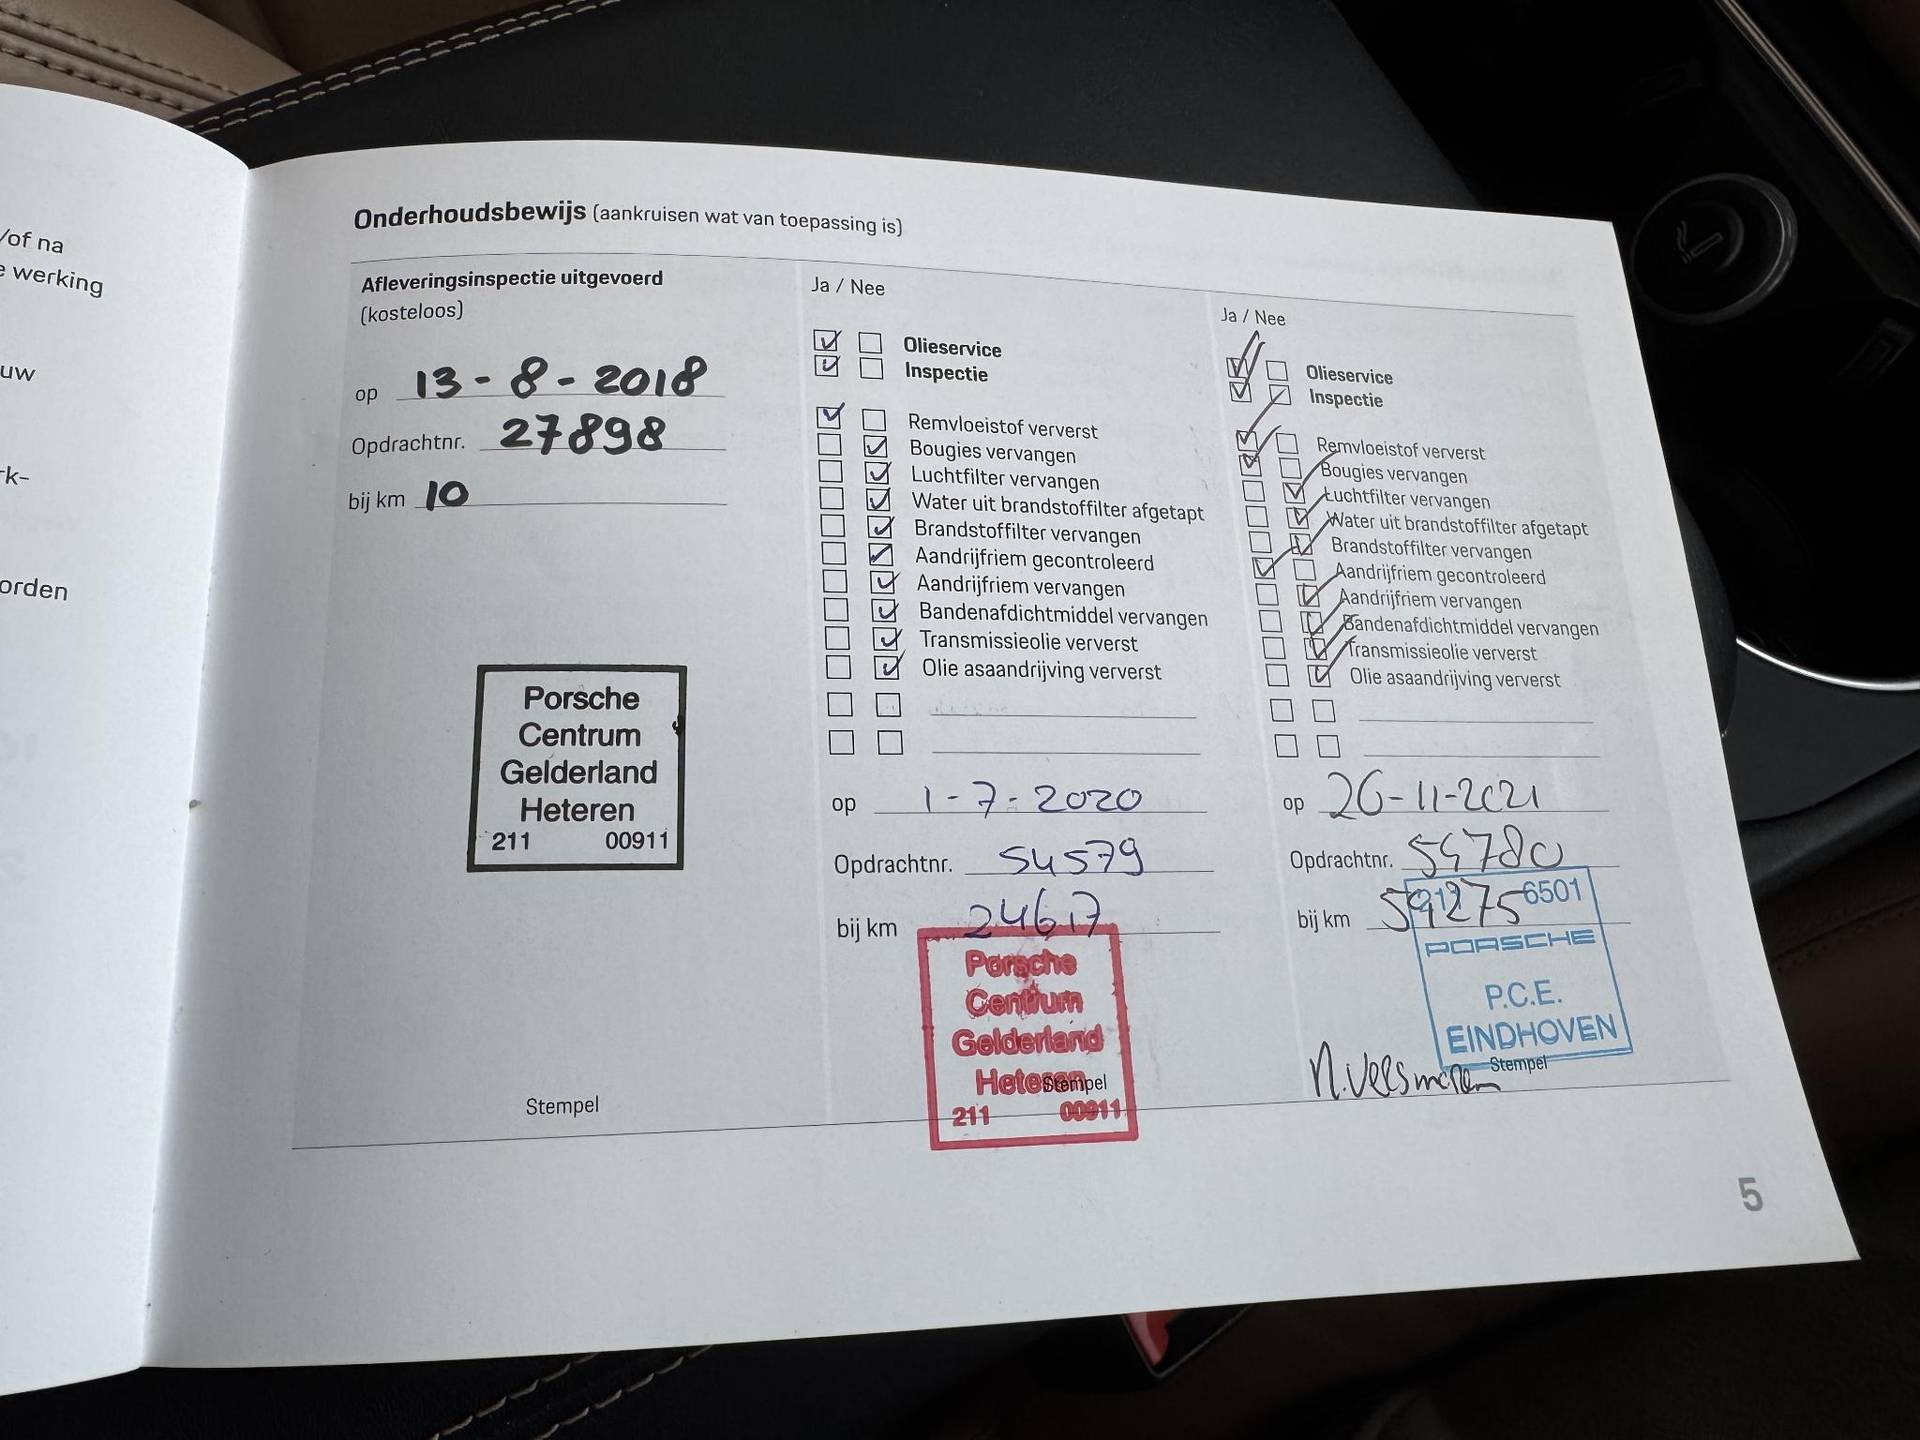 /of na
e werking
uw
rk-
orden
Onderhoudsbewijs (aankruisen wat van toepassing is)
Afleveringsinspectie uitgevoerd
(kosteloos)
op 13-8-2018
Opdrachtnr. 27898
bij km 10
Porsche
Centrum
Gelderland
Heteren
211 00911
Stempel
Ja / Nee
Olieservice
Inspectie
Remvloeistof ververst
Bougies vervangen
Luchtfilter vervangen
Water uit brandstoffilter afgetapt
Brandstoffilter vervangen
Aandrijfriem gecontroleerd
Aandrijfriem vervangen
Bandenafdichtmiddel vervangen
Transmissieolie ververst
Olie asaandrijving ververst
op 1-7-2020
Opdrachtnr. 54579
bij km 24617
Porsche
Centrum
Gelderland
Heteren
Stempel
211 00911
Ja / Nee
Olieservice
Inspectie
Remvloeistof ververst
Bougies vervangen
Luchtfilter vervangen
Water uit brandstoffilter afgetapt
Brandstoffilter vervangen
Aandrijfriem gecontroleerd
Aandrijfriem vervangen
Bandenafdichtmiddel vervangen
Transmissieolie ververst
Olie asaandrijving ververst
op 26-11-2021
Opdrachtnr. 54780
bij km
6501
PORSCHE
P.C.E.
EINDHOVEN
Stempel
5